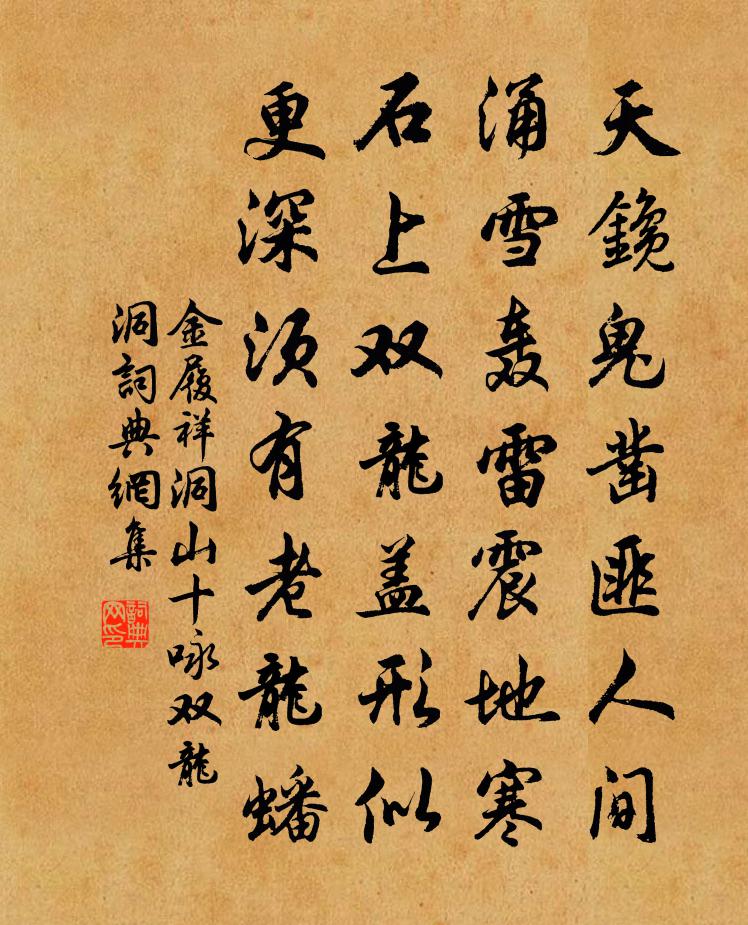 天鑱鬼凿匪人间
涌雪轰雷震地寒
石上双龍盖形似
更深须有老龍蟠
金履祥洞山十咏双龍
洞詞典網集
詞典
网印